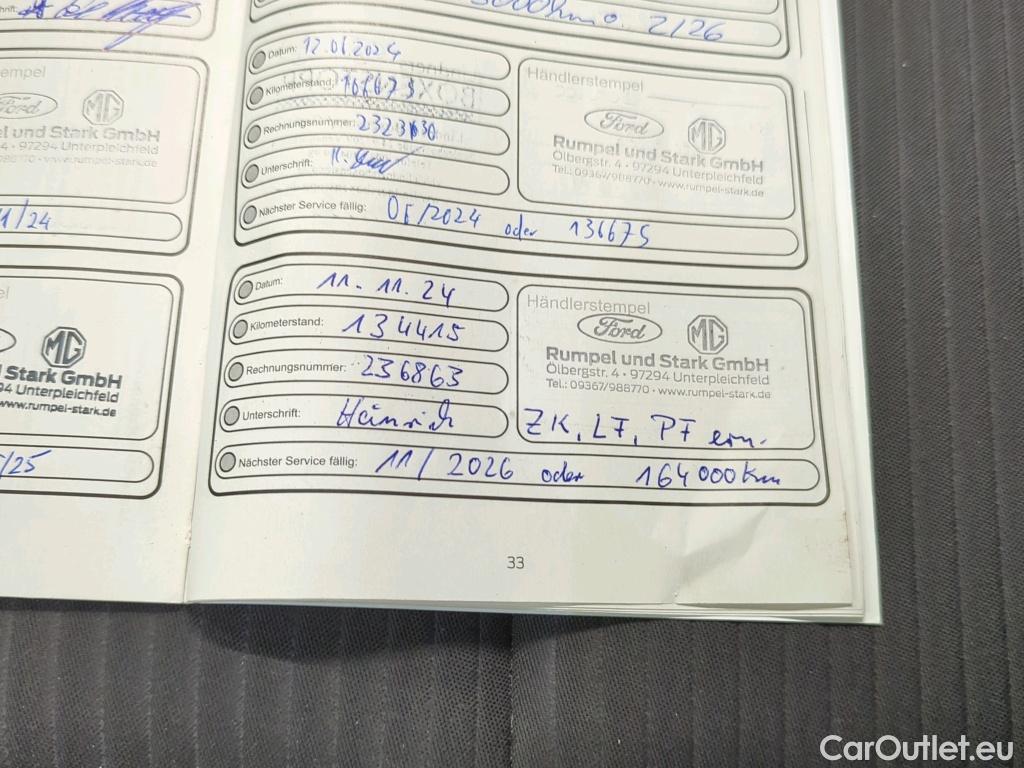 2/26
Datum: 12.06.2024
Kilometerstand:
Rechnungsnummer:
Unterschrift:
Nächster Service fällig: oder 136675
Händlerstempel
Ford MG
Rumpel und Stark GmbH
Ölbergstr. 4 • 97294 Unterpleichfeld
Tel.: 09367/988770 • www.rumpel-stark.de
Datum: 11. 11. 24
Kilometerstand: 134415
Rechnungsnummer: 236863
Unterschrift: Heinrich
Nächster Service fällig: 11/2026 oder 164000km
Händlerstempel
Ford MG
Rumpel und Stark GmbH
Ölbergstr. 4 • 97294 Unterpleichfeld
Tel.: 09367/988770 • www.rumpel-stark.de
ZK, LF, PF ern.
33
stempel
Ford MG
Rumpel und Stark GmbH
4 • 97294 Unterpleichfeld
988770 • www.rumpel-stark.de
1/24
MG
d Stark GmbH
94 Unterpleichfeld
www.rumpel-stark.de
/25
CarOutlet.eu